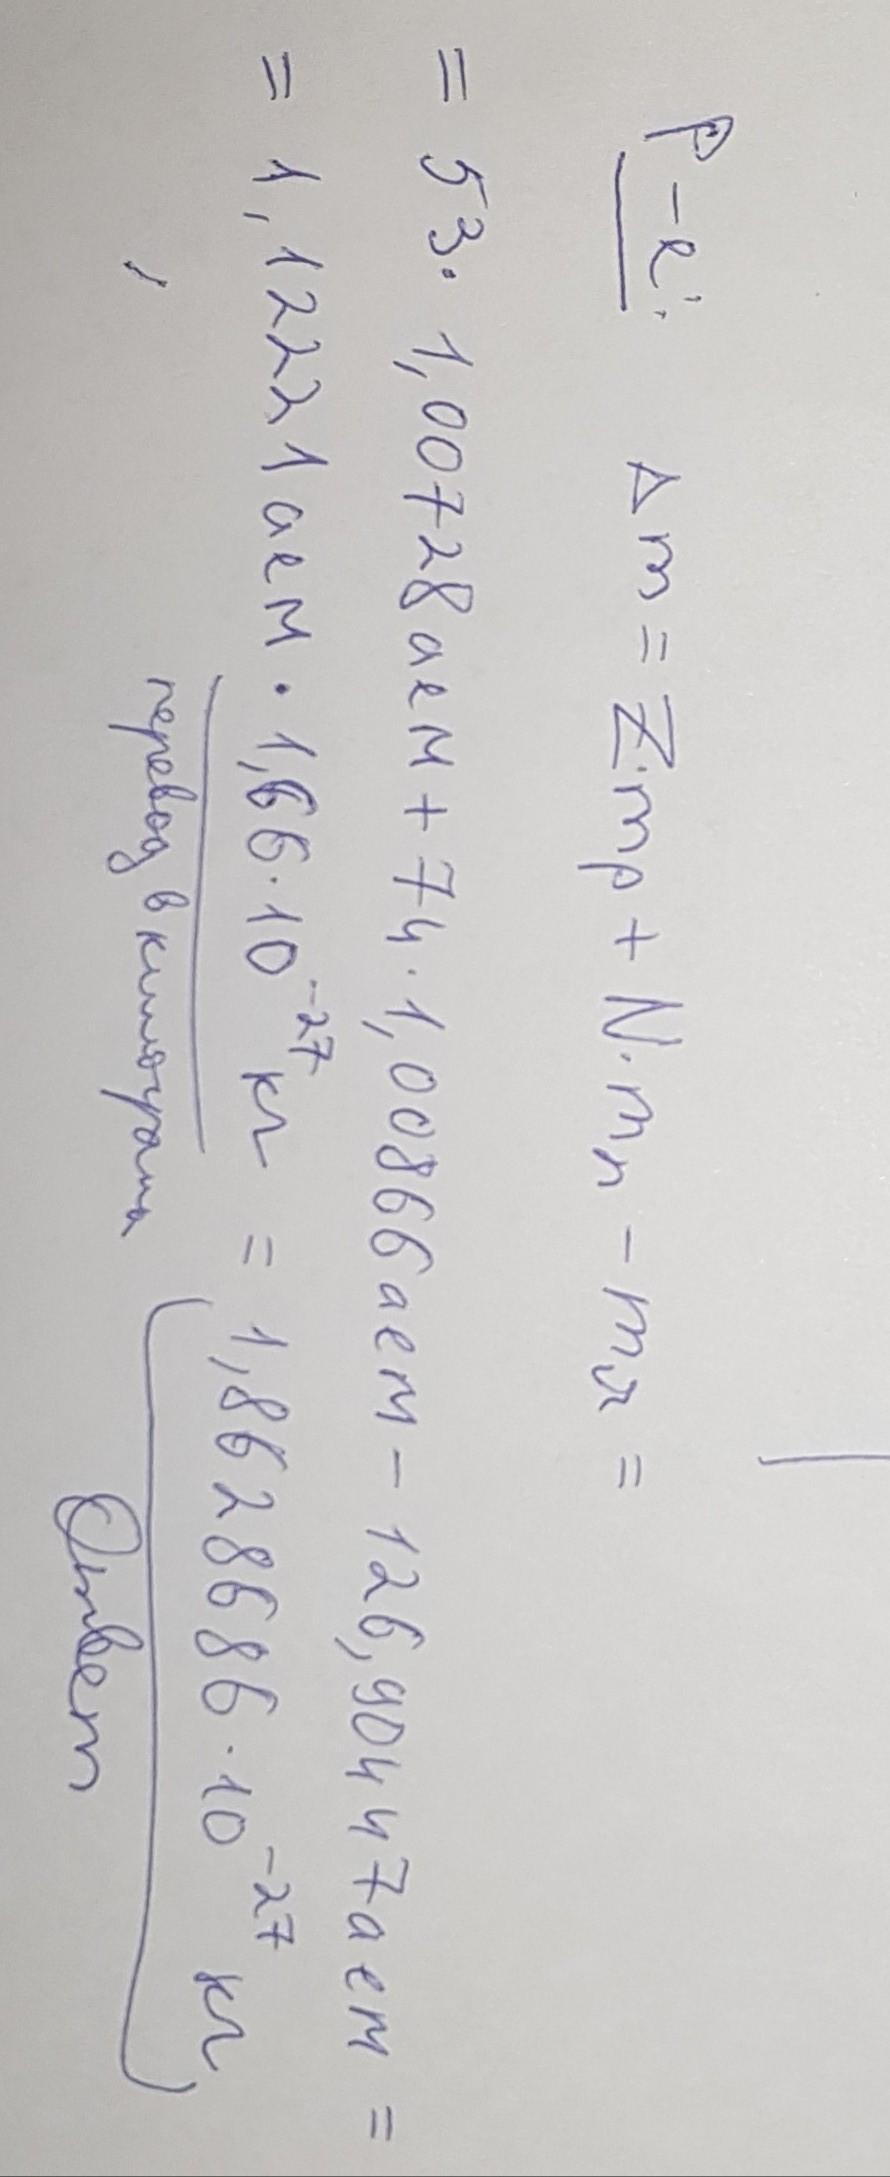 Р-е: Δm = Z·mp + N·mn - mя =
= 53·1,00728аем + 74·1,00866аем - 126,90447аем =
= 1,12221аем · 1,66·10⁻²⁷ кг = 1,8628686·10⁻²⁷ кг
перевод в килограмы
Ответ